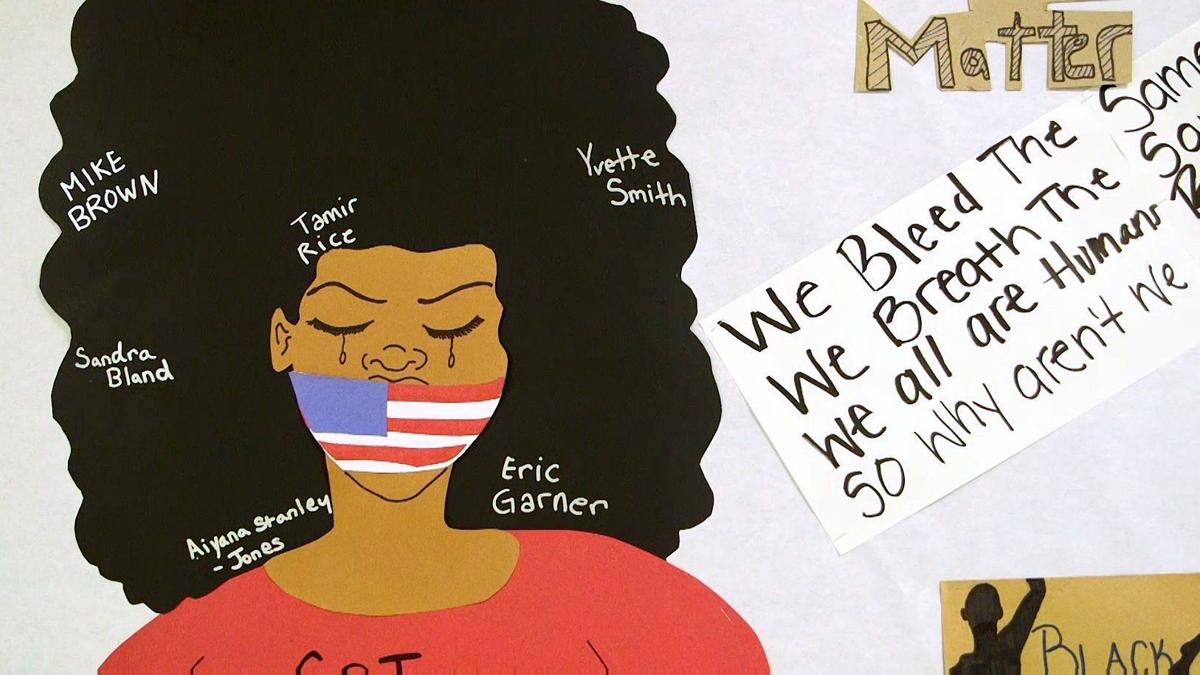 MIKE
BROWN
Tamir
Rice
Yvette
Smith
Sandra
Bland
Eric
Garner
Aiyana Stanley
-Jones
Matter
We Bleed The Same
We Breath The
We all are Humans
SO Why aren't We
BLACK